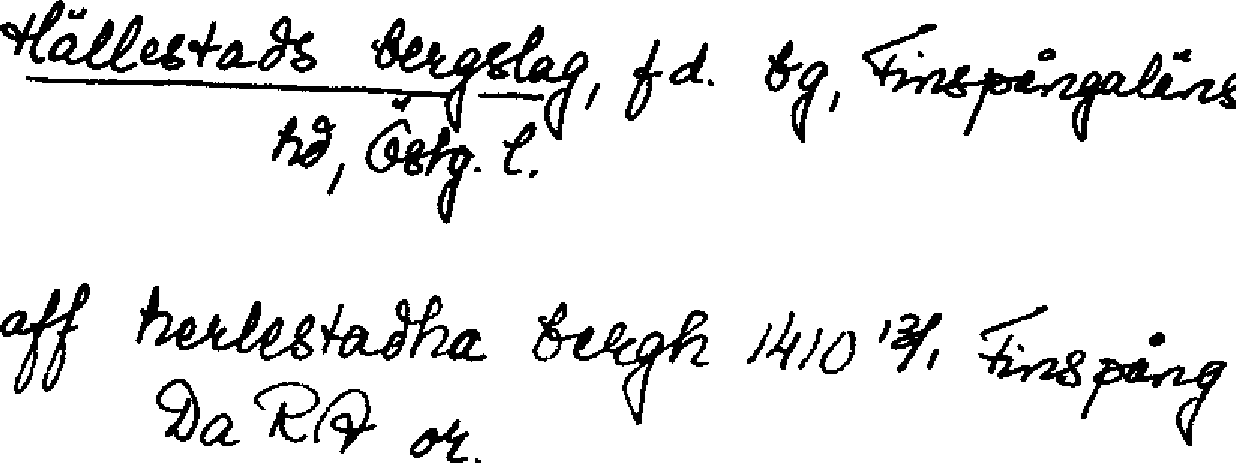 Hällestads bergslag, fd. bg, Finspångaläns
hd, Östg. l.
aff herlestadha bergh 1410 13/1 Finspång
Da RA or.